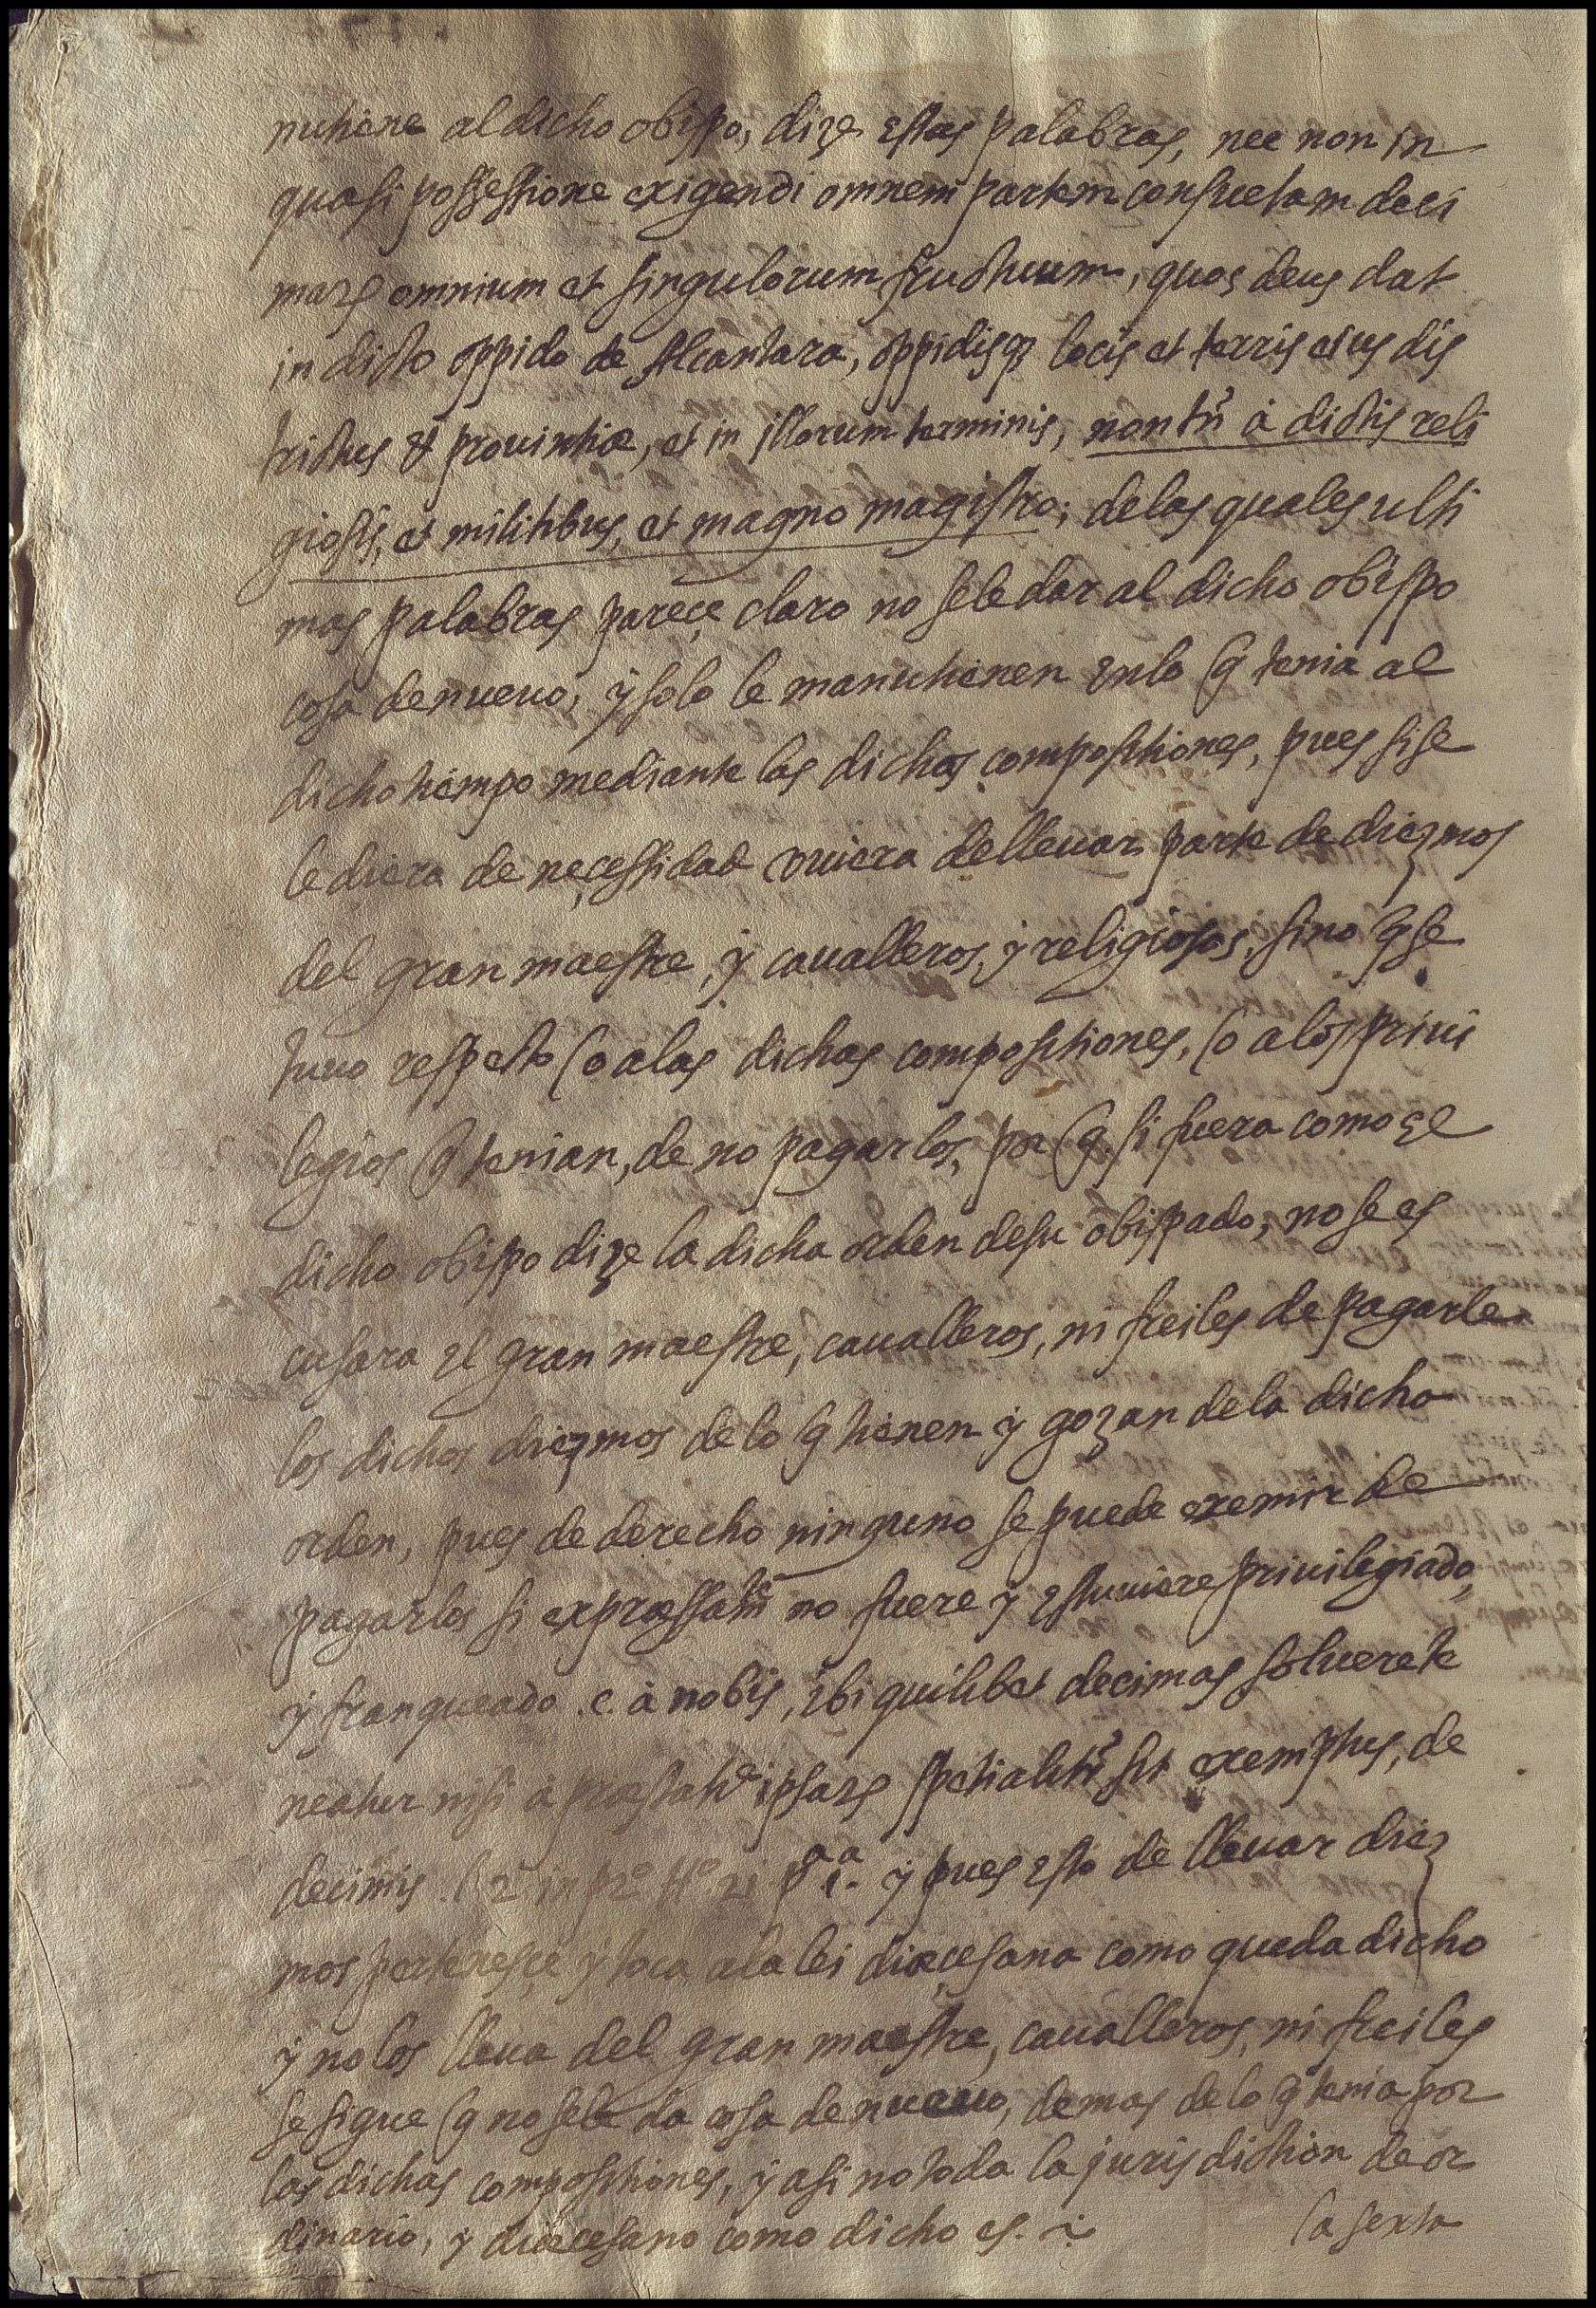 nutiene al dicho obispo, dize estas palabras, nec non in
quasi possessione exigendi omnem partem consuetam deci
marꝝ omnium et singulorum fructuum, quos deus dat
in dicto oppido de Alcantara, oppidisqꝫ locis et terris eius dis
trictus & prouintiæ, et in illorum terminis, non tñ à dictis reli
giosis, et militibus, et magno magistro; de las quales ulti
mas palabras pareçe claro no sele dar al dicho obispo
cosa denueuo, y solo le manutienen enlo q̃ tenia al
dicho tiempo mediante las dichas compositiones, pues si se
le diera de neçessidad ouiera de lleuar parte de diezmos
del gran maestre, y caualleros, y religiosos, sino q̃ se
tuuo respeto o a las dichas compositiones, o a los priui
legios q̃ tenian, de no pagarlos, por q̃ si fuera como el
dicho obispo dize la dicha orden de su obispado, no se es
cusara el gran maestre, caualleros, ni freiles de pagarle
los dichos diezmos de lo q̃ tienen y gozan de la dicha
orden, pues de derecho ninguno se puede exemir de
pagarlos si expressam̃te no fuere y estuuiere priuilegiado,
y franqueado .c. à nobis, ibi quilibet decimas soluere te
neatur nisi à præstatiõe ipsarꝝ spetialitr̃ sit exemptus, de
decimis. l 2ª in prº tº 21 pª 1ª. y pues esto de lleuar diez
mos perteneşçe y toca a la lei dioecesana como queda dicho
y no los lleua del gran maestre, caualleros, ni freiles
se sigue q̃ no sele da cosa de nueuo, demas de lo q̃ tenia por
las dichas compositiones, y asi no toda la jurisdiction de or
dinario, y dioecesano como dicho es.
la sexta